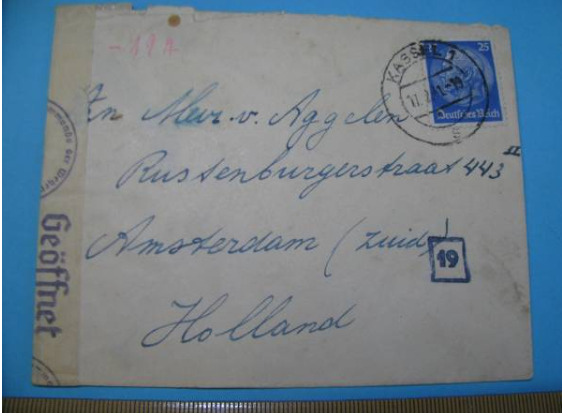 - 19 A
KASSEL 1
25
Deutsches Reich
An Mevr. v. Aggelen
Rustenburgerstraat 443 II
Amsterdam (Zuid)
19
Holland
Geöffnet